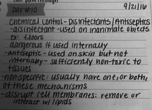 9/21/16
Chemical Control - Disinfectants / Antiseptics
- disinfectant - used on inanimate objects or floors
dangerous if used internally
- antiseptic - used on skin but not
internally - sufficiently non-toxic to
tissues
nonspecific - usually have one, or both,
of these mechanisms
- disrupt cell membranes: remove or
interact w/ lipids